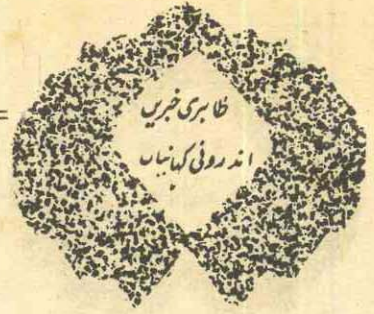 ظاہری خبریں
اندرونی کہانیاں